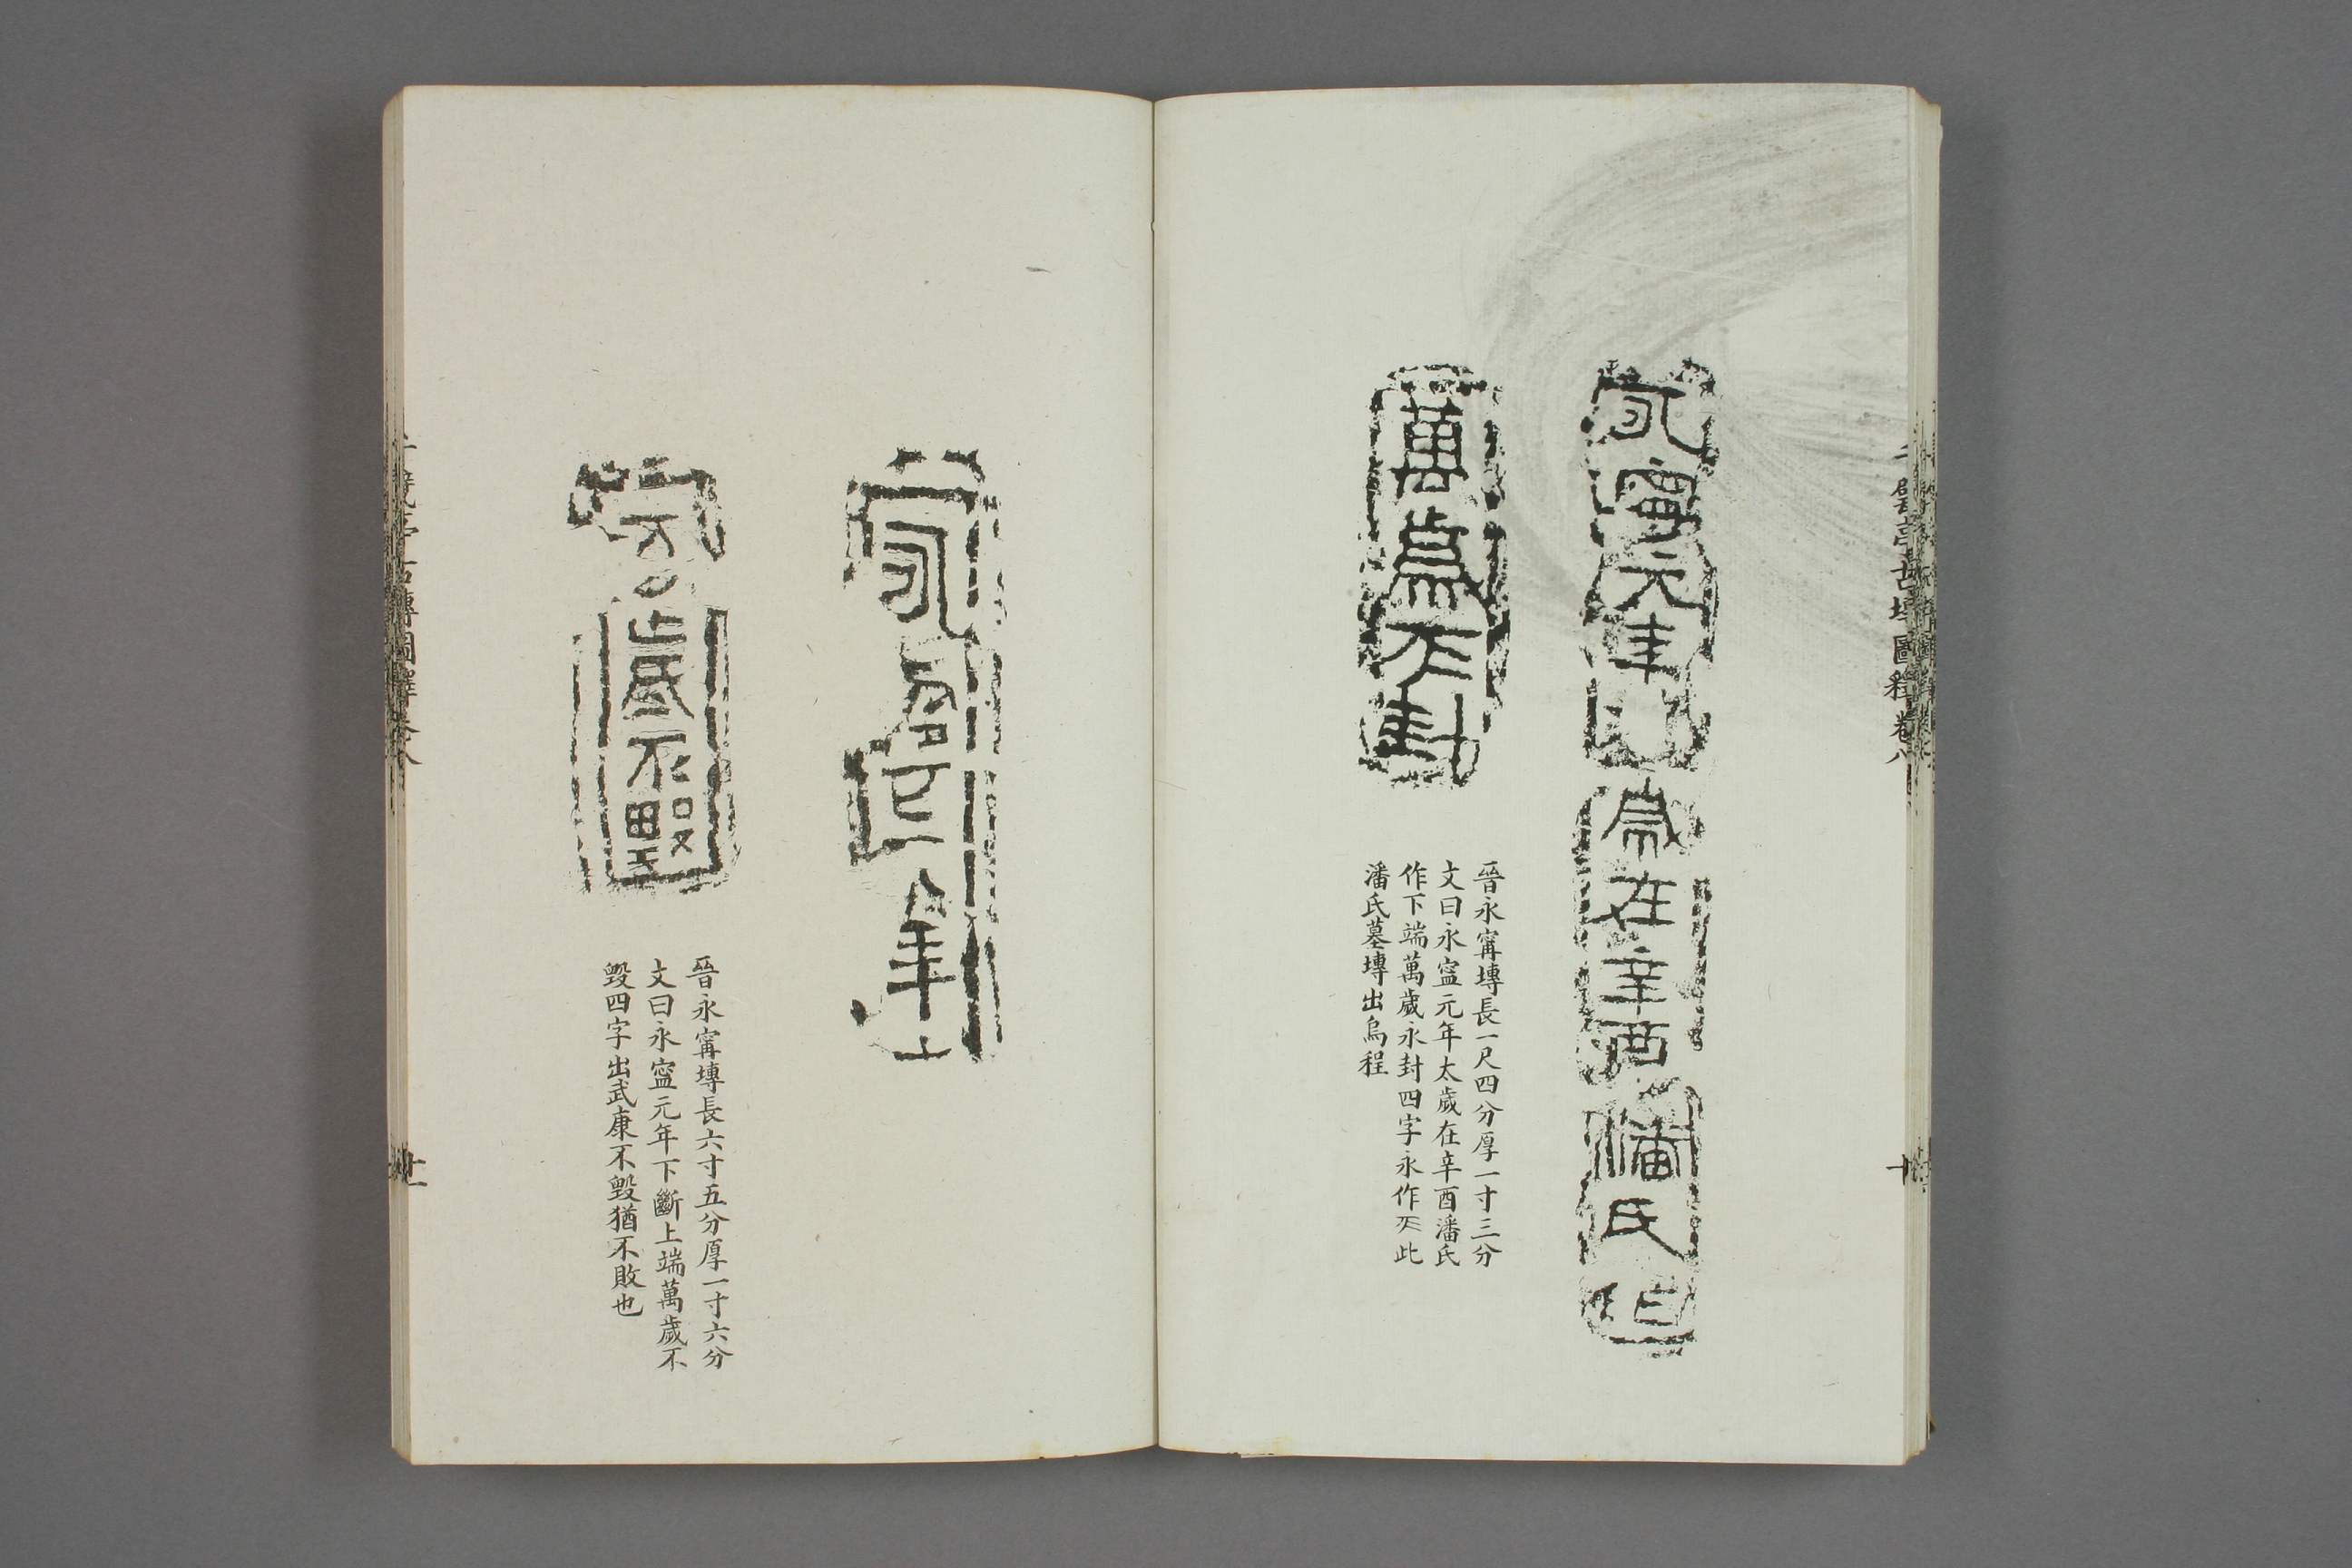 永寧元年太歲在辛酉潘氏作
萬歲永封
晉永寗塼長一尺四分厚一寸三分
文曰永寍元年太歲在辛酉潘氏
作下端萬歲永封四字永作𣱵此
潘氏墓塼出烏程
永寍元年
萬歲不毀
晉永寗塼長六寸五分厚一寸六分
文曰永寍元年下斷上端萬歲不
毀四字出武康不毀猶不敗也
千甓亭古塼圖釋卷八